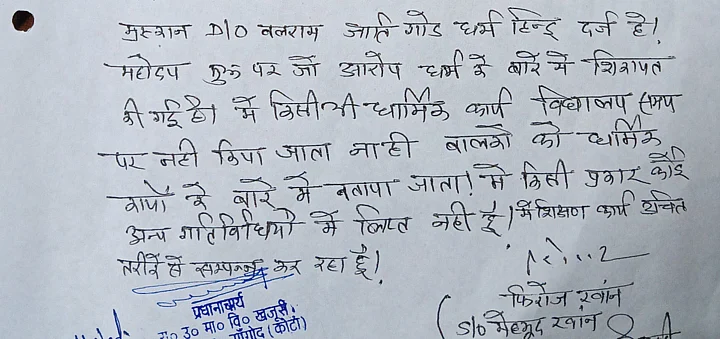 मुस्कान D/O बलराम जाति गोड धर्म हिन्दू दर्ज है।
महोदय मुझ पर जो आरोप धर्म के बारे में शिकायत
की गई है। मैं किसी भी धार्मिक कार्य विद्यालय समय
पर नही किया जाता नाही बालकों को धार्मिक
कार्यो के बारे में बताया जाता! मैं किसी प्रकार कोई
अन्य गतिविधियों में लिप्त नही हूँ। मैं शिक्षण कार्य उचित
तरीके से सम्पन्न कर रहा हूँ।
फिरोज खांन
S/o मेहमूद खांन
प्रधानाचार्य
रा० उ० मा० वि० खजूरी,
सांगोद (कोटा)